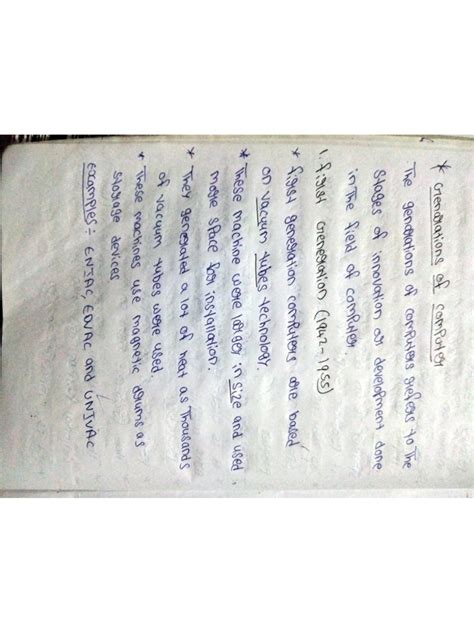 * Generations of computer
The generations of computers refers to the
stages of innovation or development done
in the field of computer
1. first Generation (1942-1955)
* first generation computers are based
on vacuum tubes technology.
* These machine were larger in size and used
more space for installation.
* They generated a lot of heat as thousands
of vacuum tubes were used.
* These machines use magnetic drums as
storage devices
Examples ÷ ENIAC, EDVAC and UNIVAC